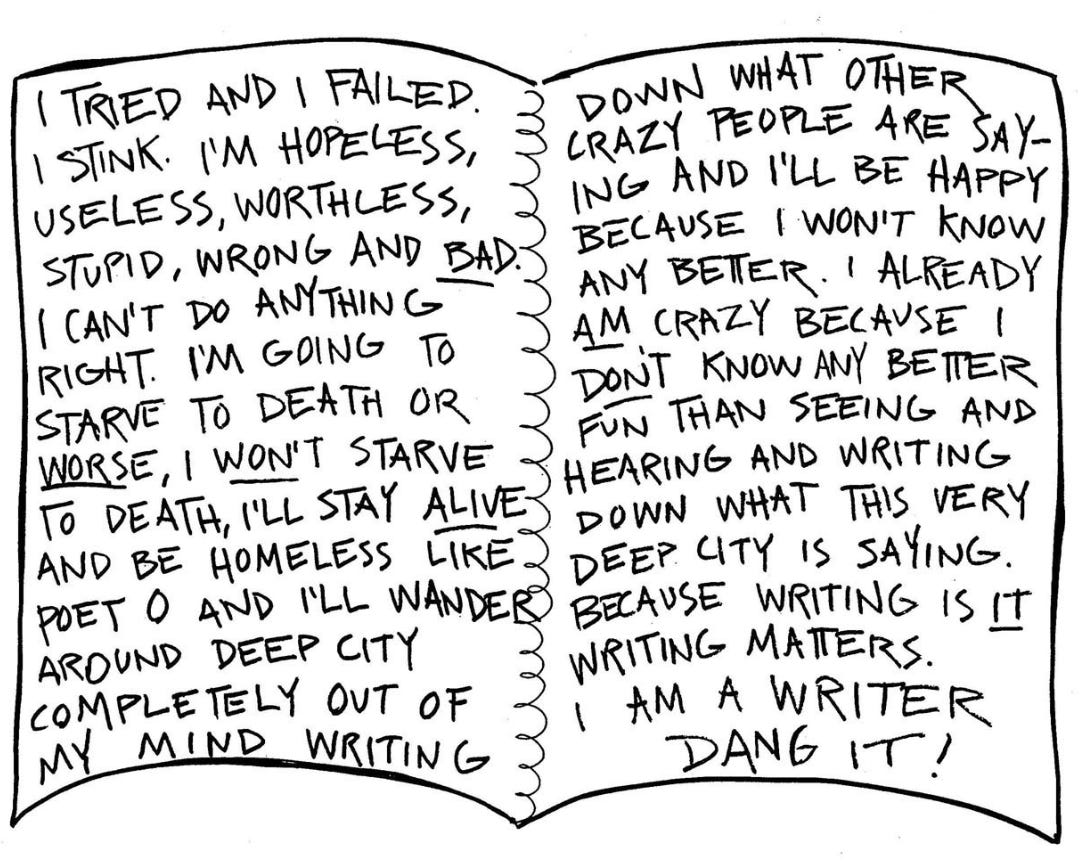 I TRIED AND I FAILED.
I STINK. I'M HOPELESS,
USELESS, WORTHLESS,
STUPID, WRONG AND BAD.
I CAN'T DO ANYTHING
RIGHT. I'M GOING TO
STARVE TO DEATH OR
WORSE, I WON'T STARVE
TO DEATH, I'LL STAY ALIVE
AND BE HOMELESS LIKE
POET O AND I'LL WANDER
AROUND DEEP CITY
COMPLETELY OUT OF
MY MIND WRITING
DOWN WHAT OTHER
CRAZY PEOPLE ARE SAY-
ING AND I'LL BE HAPPY
BECAUSE I WON'T KNOW
ANY BETTER. I ALREADY
AM CRAZY BECAUSE I
DON'T KNOW ANY BETTER
FUN THAN SEEING AND
HEARING AND WRITING
DOWN WHAT THIS VERY
DEEP CITY IS SAYING.
BECAUSE WRITING IS IT
WRITING MATTERS.
I AM A WRITER
DANG IT!